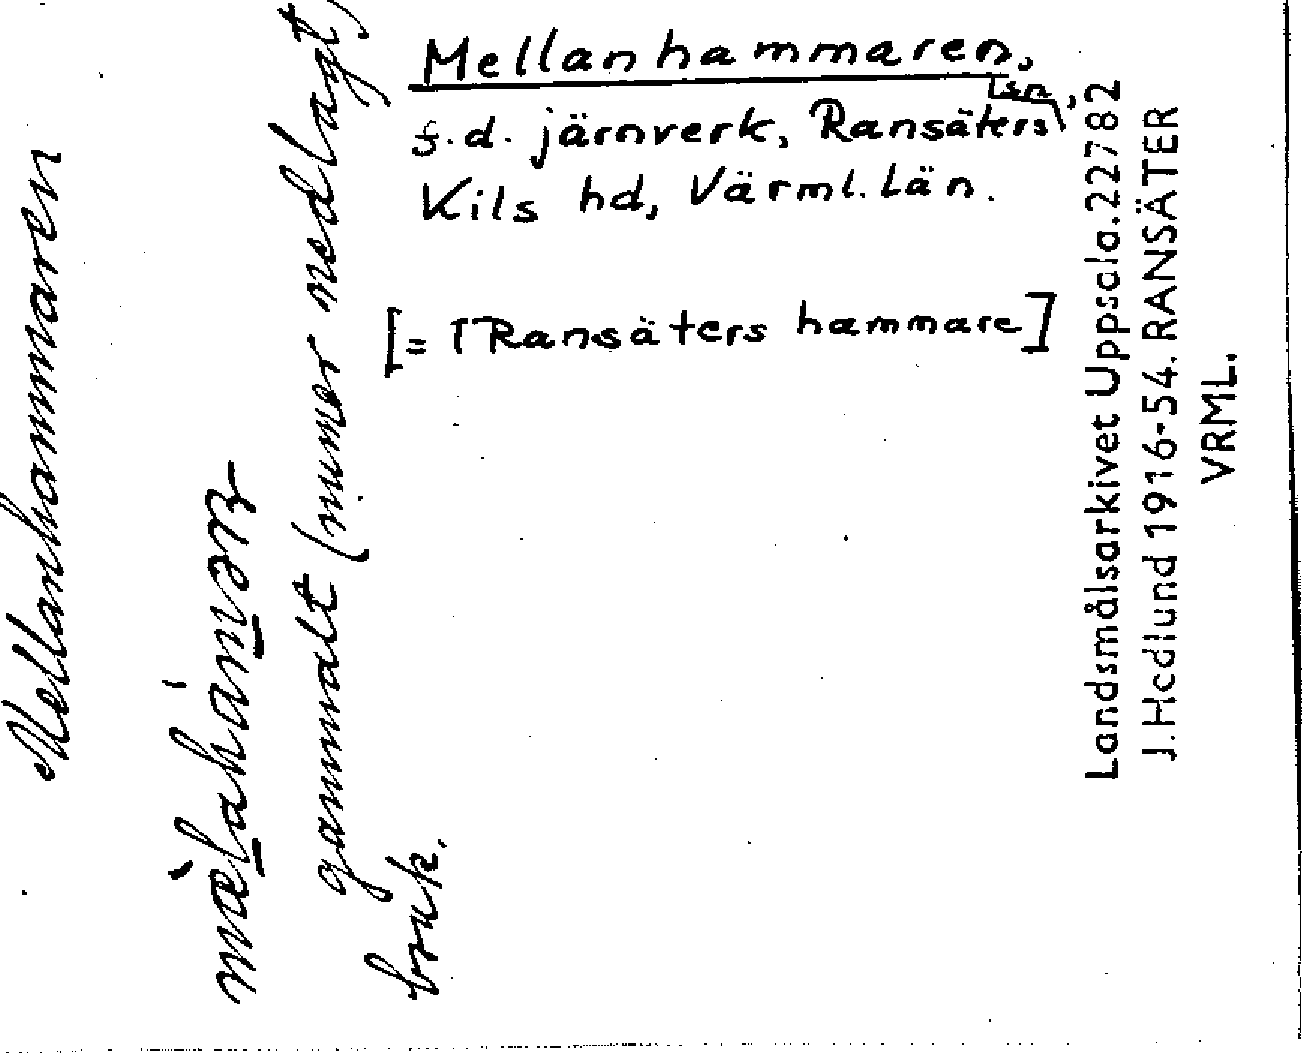 Mellanhammaren,
f.d. järnverk, Ransäters sn,
Kils hd, Värml. län.
[= ↑Ransäters hammare]
Mellanhammaren
gammalt (numer nedlagt)
bruk.
Landsmålsarkivet Uppsala. 22782
J. Hedlund 1916-54. RANSÄTER
VRML.